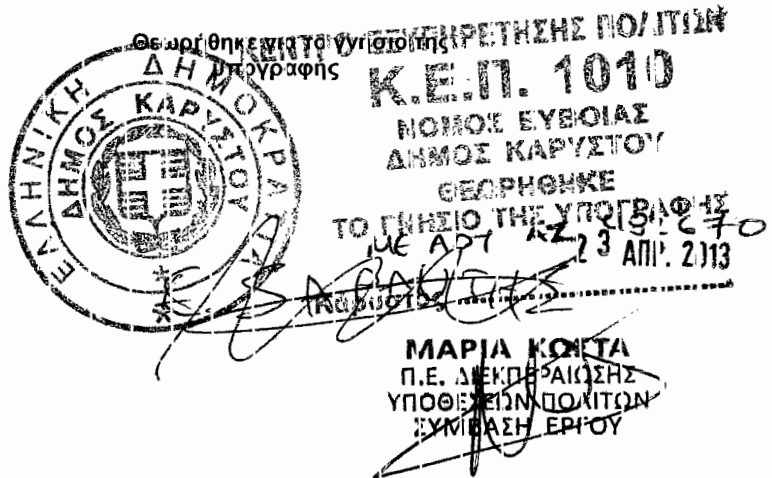 Θεωρήθηκε για το γνήσιο της
υπογραφής
ΕΛΛΗΝΙΚΗ ΔΗΜΟΚΡΑΤΙΑ
ΔΗΜΟΣ ΚΑΡΥΣΤΟΥ
ΚΕΝΤΡΟ ΕΞΥΠΗΡΕΤΗΣΗΣ ΠΟΛΙΤΩΝ
Κ.Ε.Π. 1010
ΝΟΜΟΣ ΕΥΒΟΙΑΣ
ΔΗΜΟΣ ΚΑΡΥΣΤΟΥ
ΘΕΩΡΗΘΗΚΕ
ΤΟ ΓΝΗΣΙΟ ΤΗΣ ΥΠΟΓΡΑΦΗΣ
ΜΕ ΑΔΤ ΑΖ
23 ΑΠΡ. 2013
Κάρυστος
ΜΑΡΙΑ
Π.Ε. ΔΙΕΚΠΕΡΑΙΩΣΗΣ
ΥΠΟΘΕΣΕΩΝ ΠΟΛΙΤΩΝ
ΣΥΜΒΑΣΗ ΕΡΓΟΥ